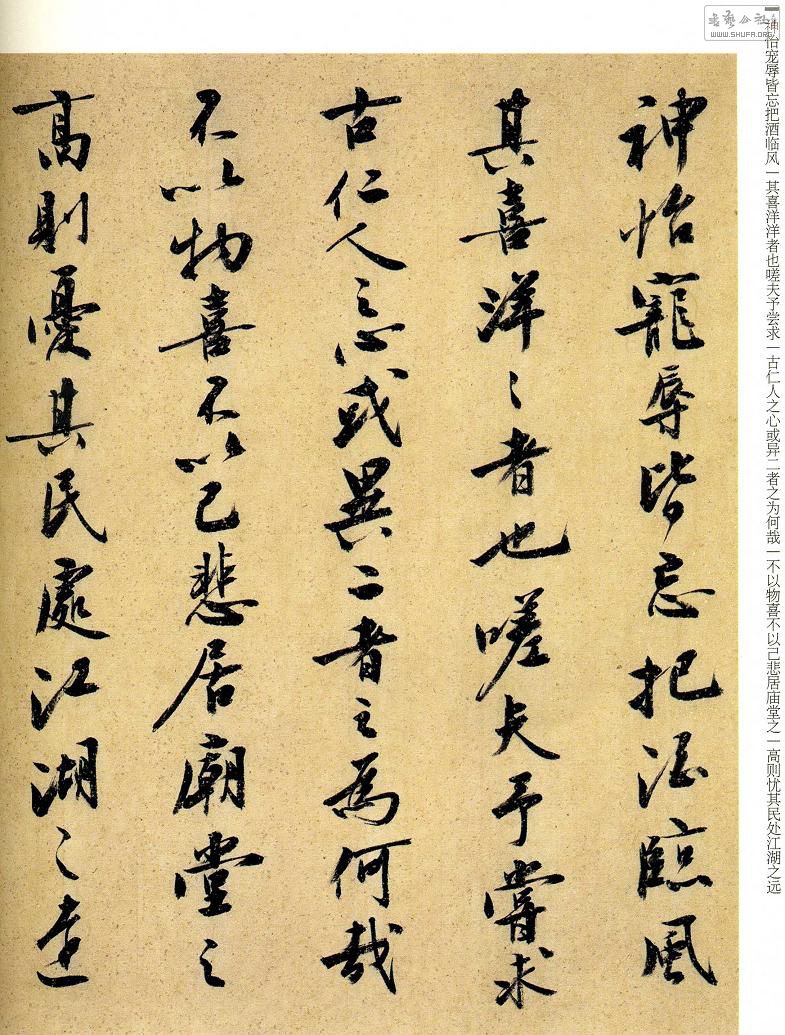 神怡寵辱皆忘把酒臨風
其喜洋〻者也嗟夫予嘗求
古仁人之心或異二者之為何哉
不以物喜不以己悲居廟堂之
高則憂其民處江湖之遠
WWW.SHUFA.ORG
神怡宠辱皆忘把酒临风一其喜洋洋者也嗟夫予尝求一古仁人之心或异二者之为何哉一不以物喜不以己悲居庙堂之一高则忧其民处江湖之远